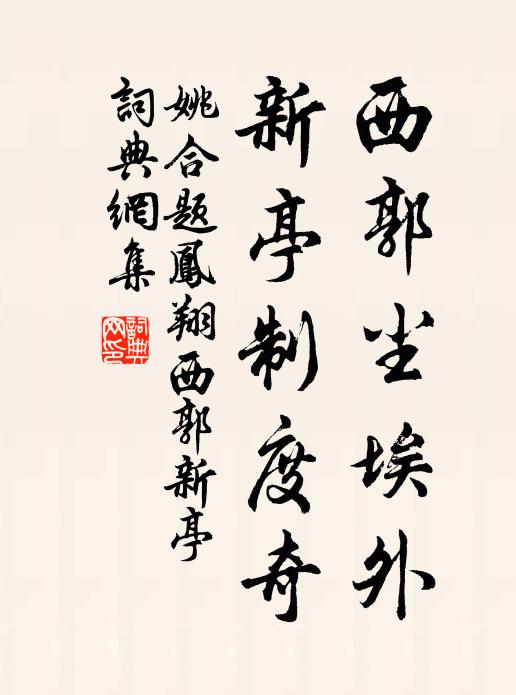 西郭尘埃外
新亭制度奇
姚合题鳳翔西郭新亭
詞典網集
詞典网印